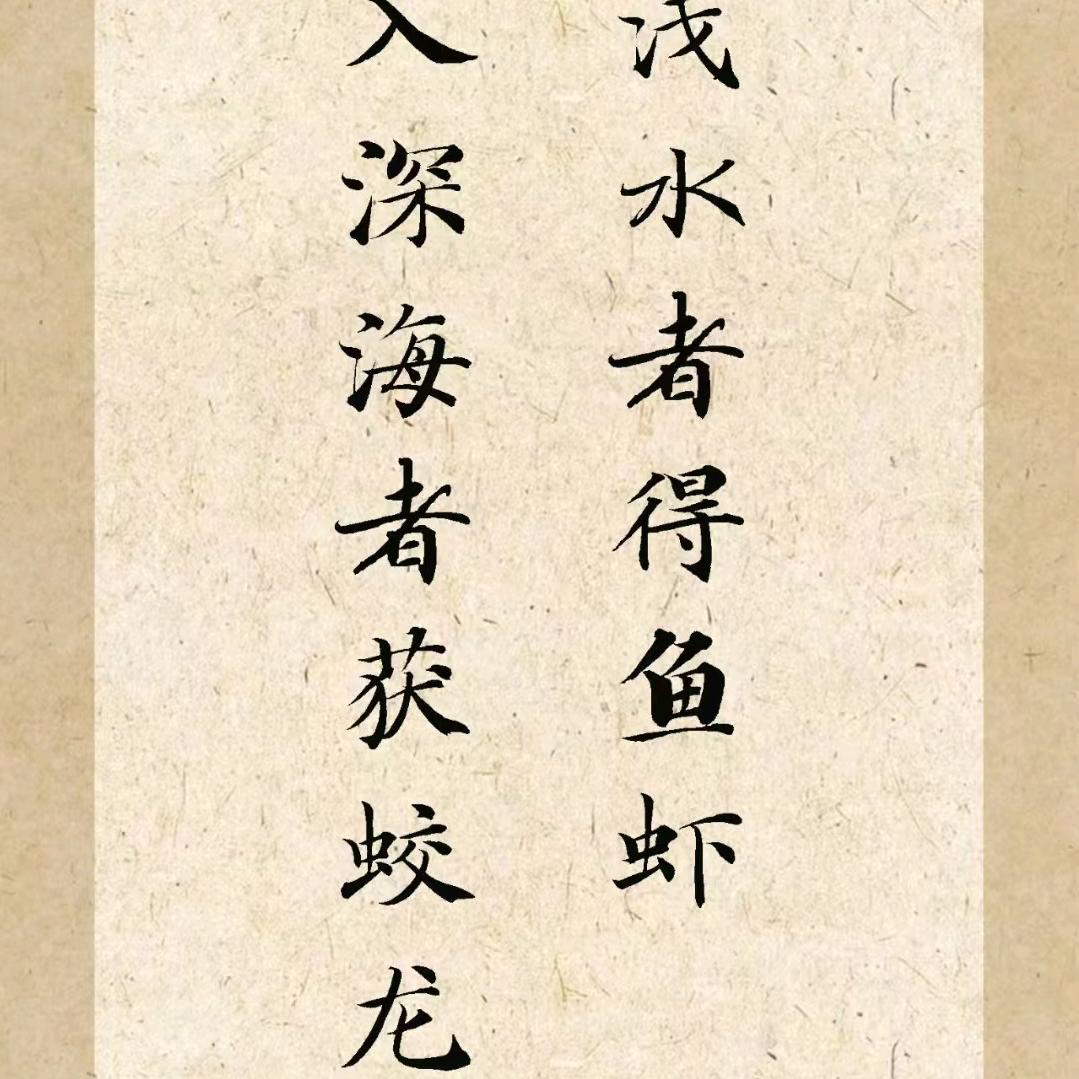 浅水者得鱼虾
入深海者获蛟龙